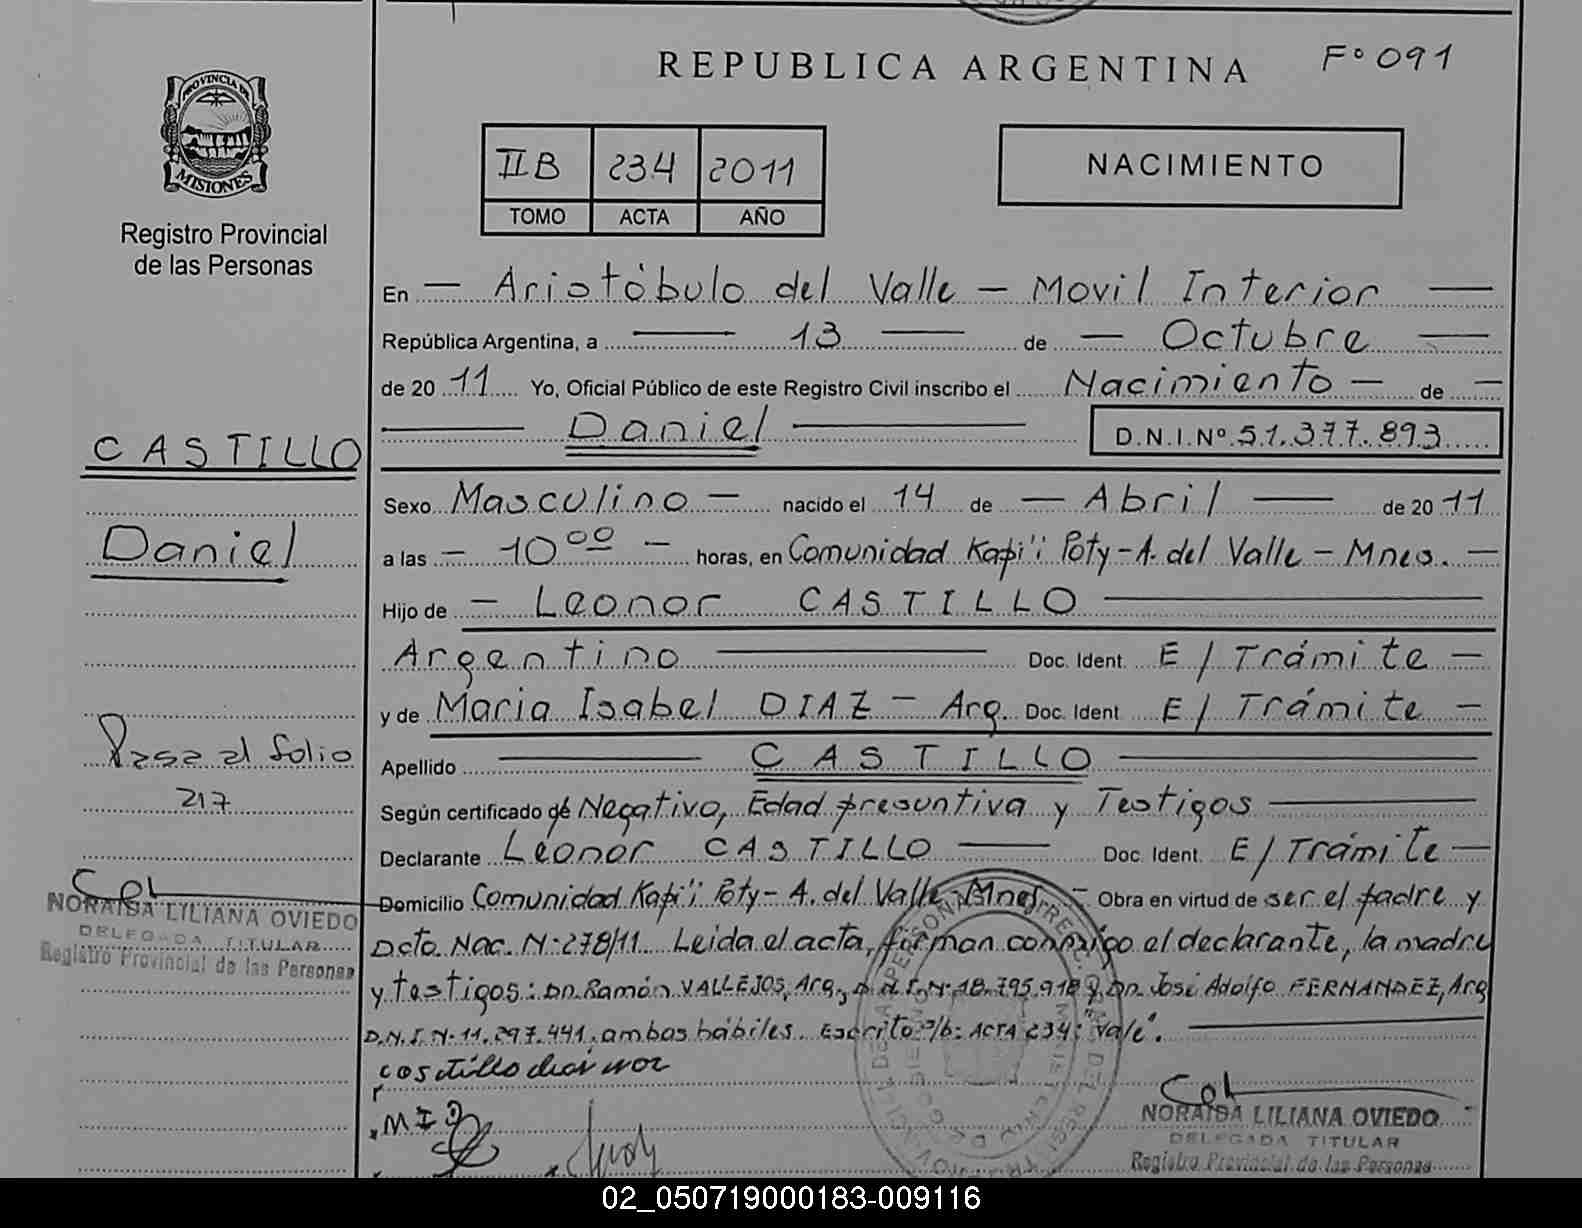 REPUBLICA ARGENTINA
Fº 091
PROVINCIA DE
MISIONES
Registro Provincial
de las Personas
IIB 234 2011
TOMO ACTA AÑO
NACIMIENTO
En — Aristóbulo del Valle — Movil Interior —
República Argentina, a — 13 — de — Octubre —
de 20 11 Yo, Oficial Público de este Registro Civil inscribo el Nacimiento — de —
— Daniel — D.N.I.Nº 51.377.893
CASTILLO
Daniel
Sexo Masculino — nacido el 14 de — Abril — de 20 11
a las — 10 00 — horas, en Comunidad Kapi'i Poty – A. del Valle – Mnes. —
Hijo de — Leonor CASTILLO —
Argentino — Doc. Ident. E / Trámite —
y de Maria Isabel DIAZ — Arg. Doc. Ident. E / Trámite —
Apellido — CASTILLO —
Pasa al folio
217
Según certificado de Negativo, Edad presuntiva y Testigos —
Declarante Leonor CASTILLO — Doc. Ident. E / Trámite —
Domicilio Comunidad Kapi'i Poty – A. del Valle – Mnes. – Obra en virtud de ser el padre y
Dcto Nac. N· 278/11 Leida el acta, firman conmigo el declarante, la madre
y testigos: Dn. Ramón VALLEJOS, Arg., D.N.I. N· 18.795.918 y Dn. José Adolfo FERNANDEZ, Arg
D.N.I. N· 11.297.441. ambos hábiles. Escrito s/b: ACTA 234: "Vale". —
NORAIDA LILIANA OVIEDO
DELEGADA TITULAR
Registro Provincial de las Personas
MID
NORAIDA LILIANA OVIEDO
DELEGADA TITULAR
Registro Provincial de las Personas
02_050719000183-009116